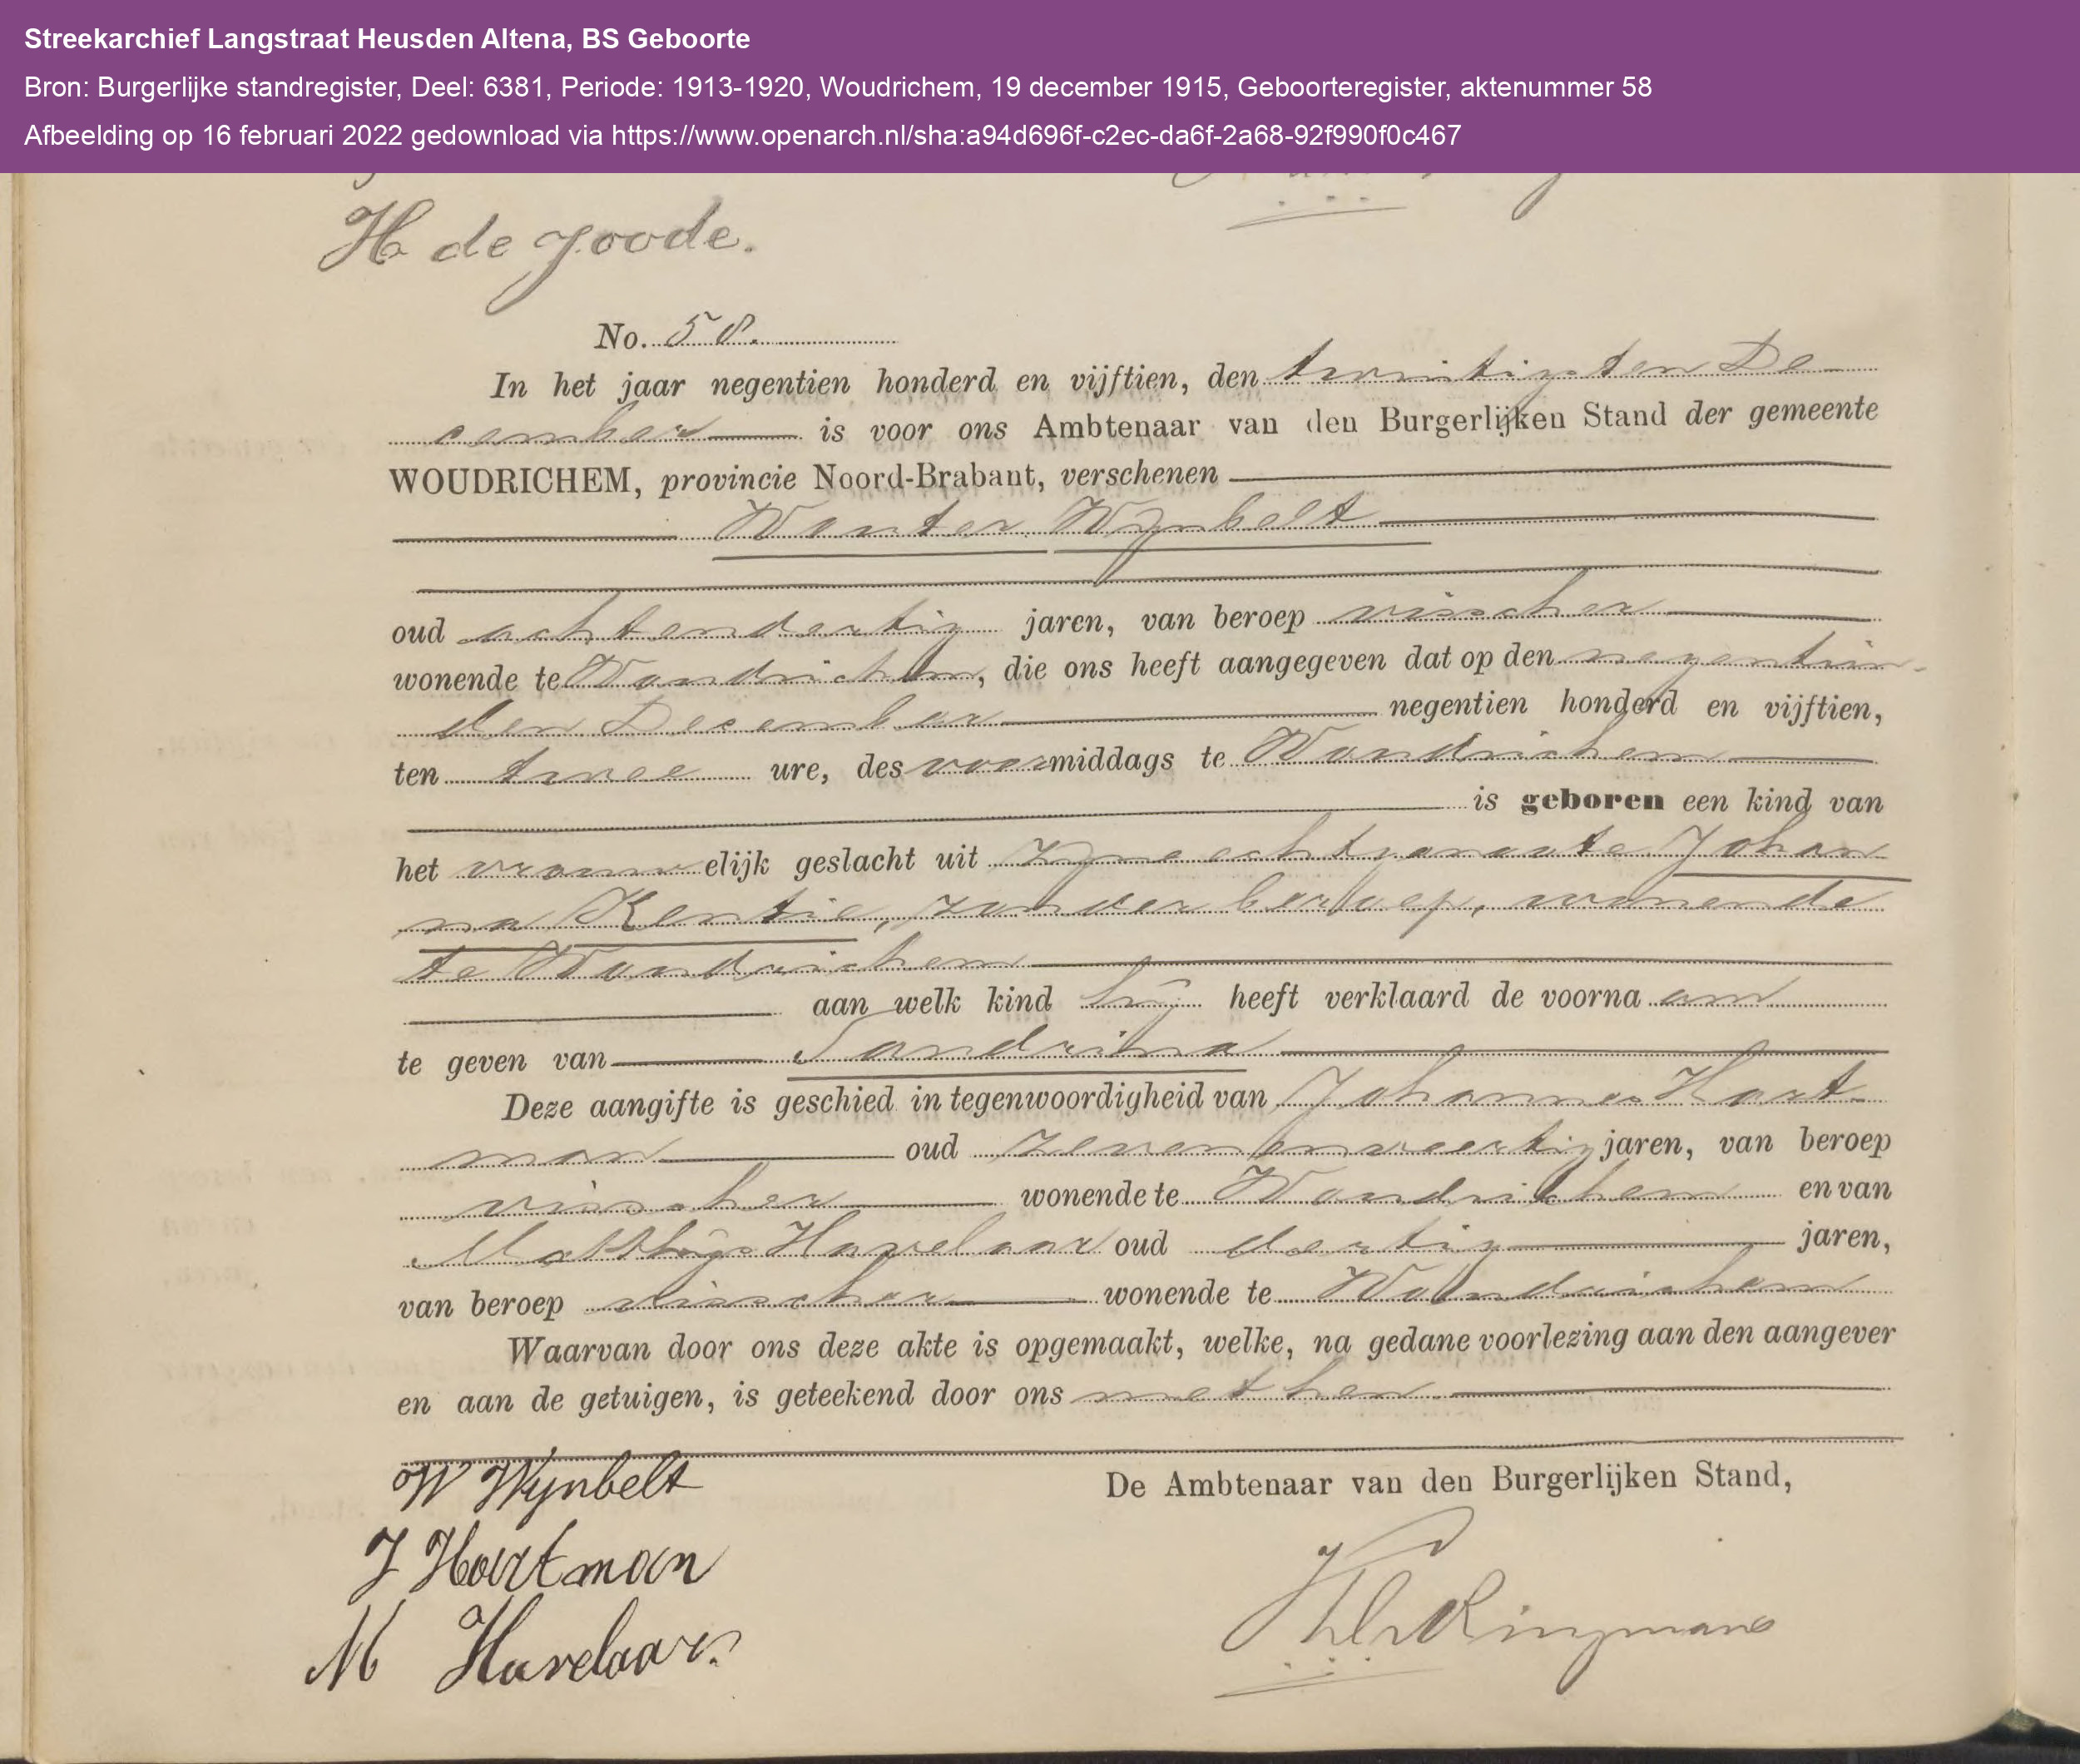 Streekarchief Langstraat Heusden Altena, BS Geboorte
Bron: Burgerlijke standregister, Deel: 6381, Periode: 1913-1920, Woudrichem, 19 december 1915, Geboorteregister, aktenummer 58
Afbeelding op 16 februari 2022 gedownload via https://www.openarch.nl/sha:a94d696f-c2ec-da6f-2a68-92f990f0c467
H de Joode.
No. 58.
In het jaar negentien honderd en vijftien, den twintigsten De
cember is voor ons Ambtenaar van den Burgerlijken Stand der gemeente
WOUDRICHEM, provincie Noord-Brabant, verschenen
Wouter Wijnbelt
oud achtendertig jaren, van beroep visscher
wonende te Woudrichem, die ons heeft aangegeven dat op den negentien-
den December negentien honderd en vijftien,
ten twee ure, des voormiddags te Woudrichem
is geboren een kind van
het vrouwelijk geslacht uit zijne echtgenoote Johan
na Kentie, zonder beroep, wonende
te Woudrichem
aan welk kind hij heeft verklaard de voorna am
te geven van Sandrina
Deze aangifte is geschied in tegenwoordigheid van Johannes Hart-
man oud zevenenveertig jaren, van beroep
visscher wonende te Woudrichem en van
Matthijs Havelaar oud dertig jaren,
van beroep visscher wonende te Woudrichem
Waarvan door ons deze akte is opgemaakt, welke, na gedane voorlezing aan den aangever
en aan de getuigen, is geteekend door ons met hen.
W Wijnbelt
De Ambtenaar van den Burgerlijken Stand,
J Hartman
M Havelaar.